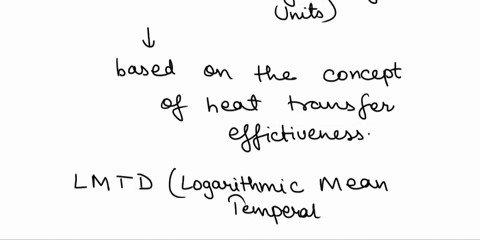 Units)
↓
based on the concept
of heat transfer
effictiveness.
LMTD (Logarithmic Mean
Temperal